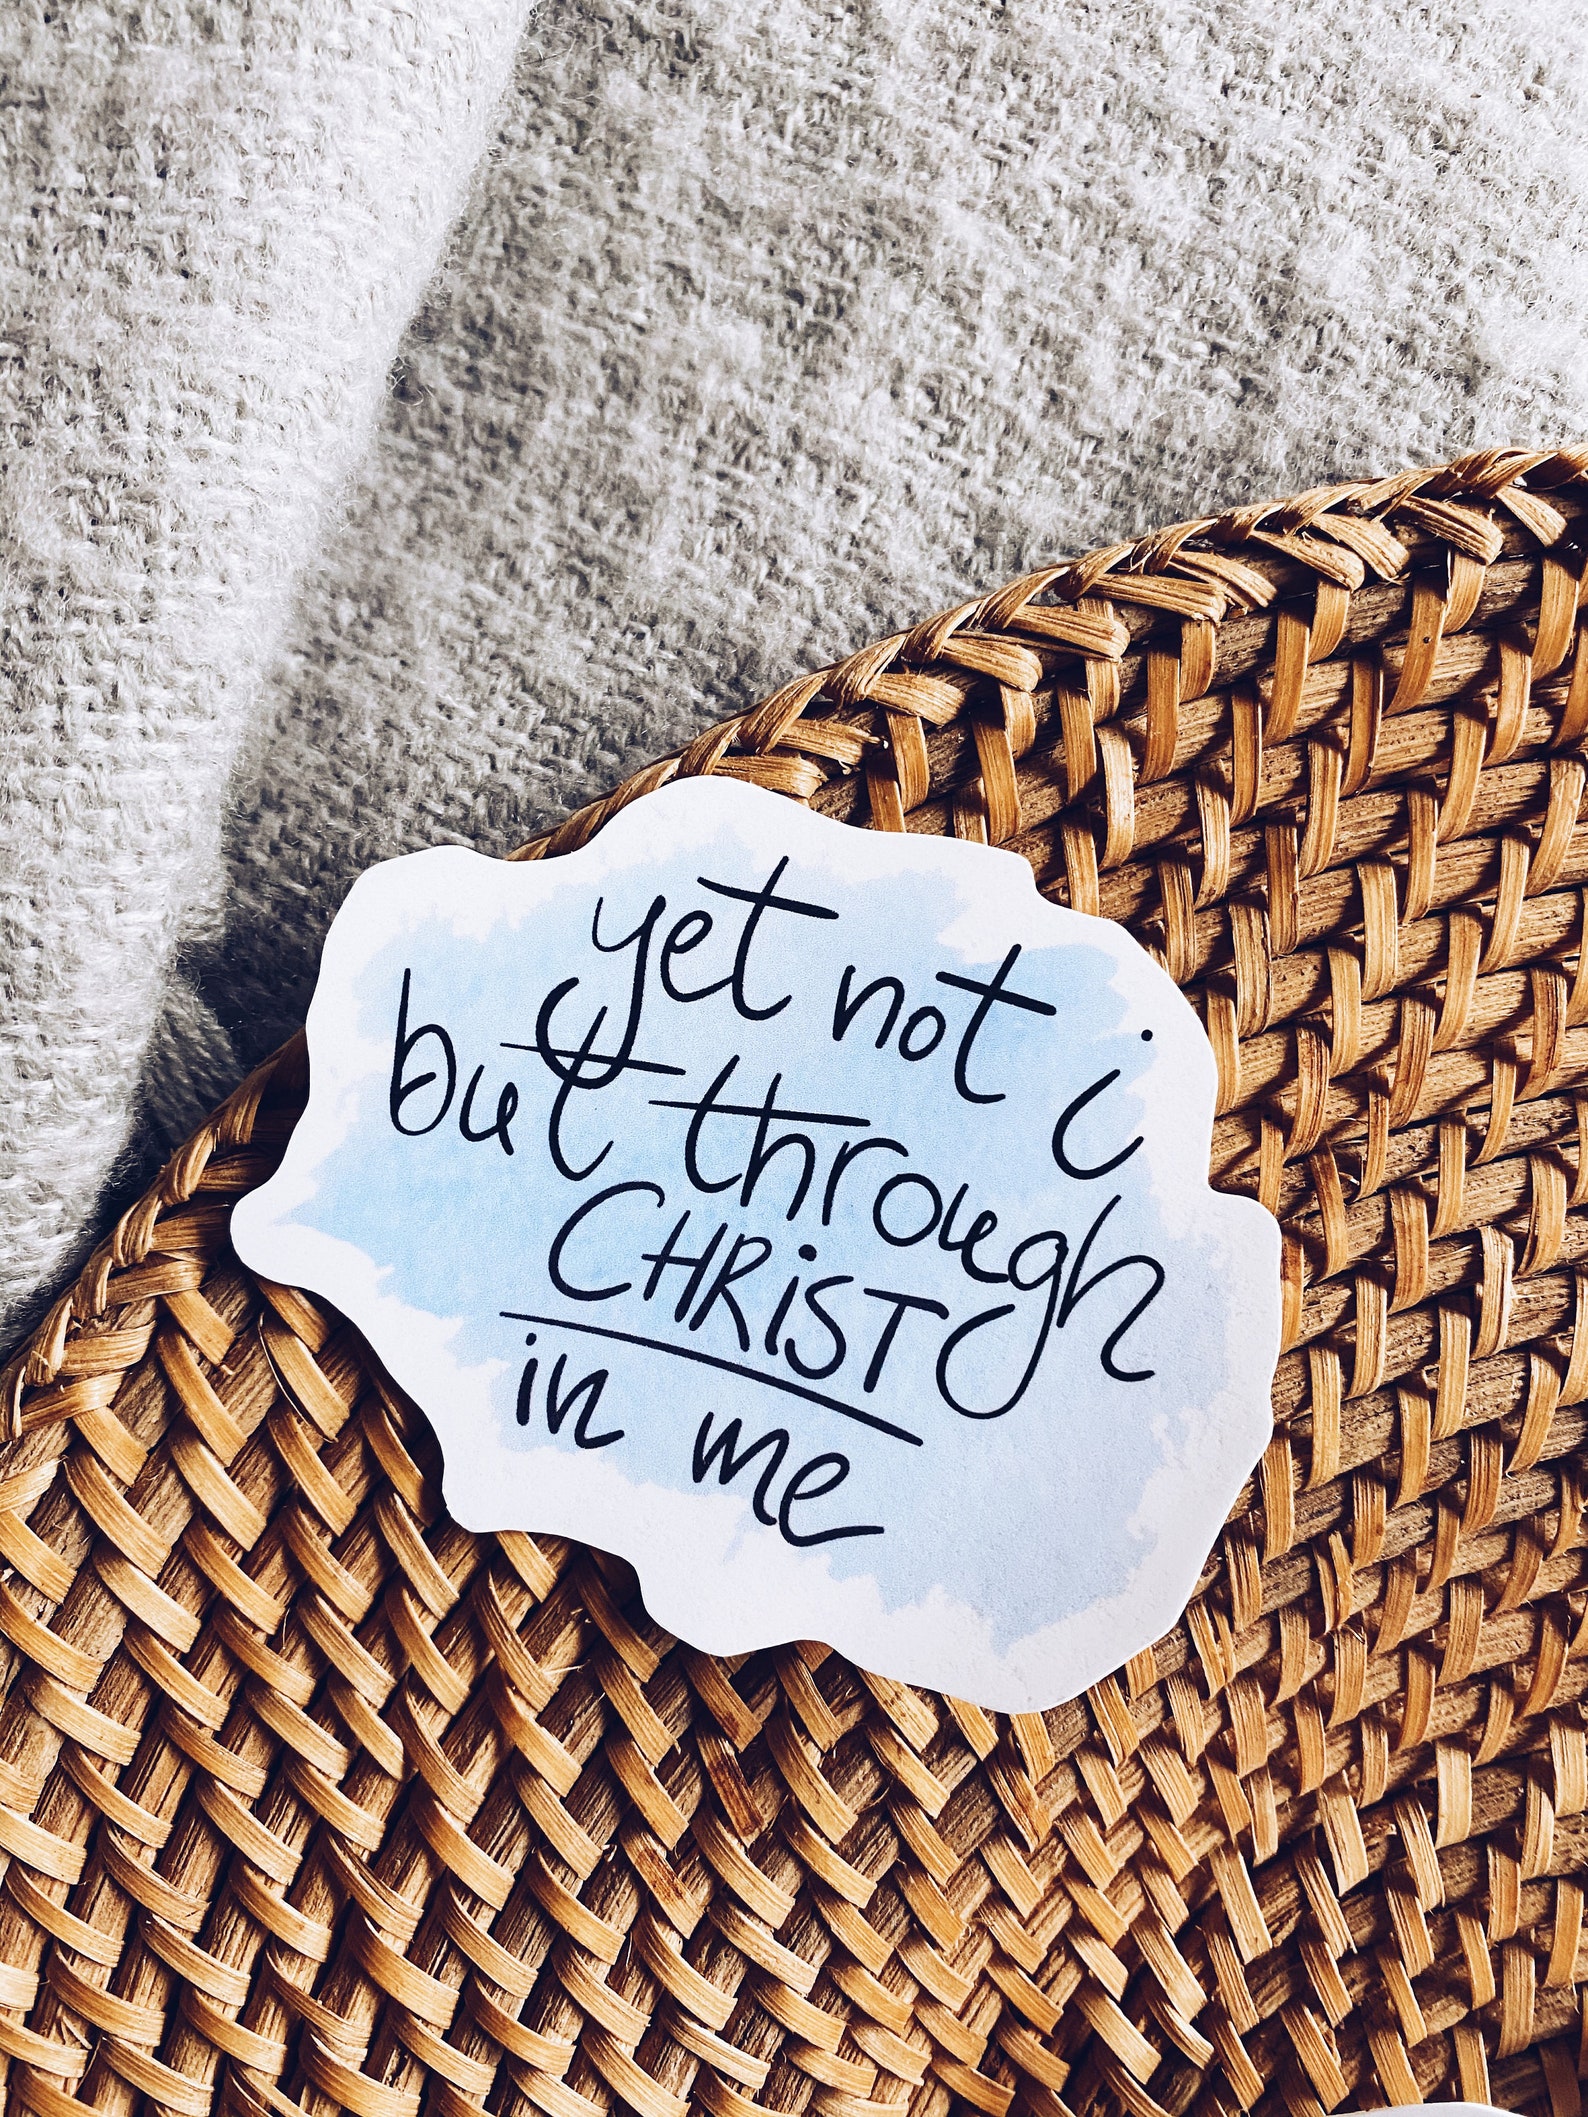 yet not i
but through
CHRiST
in me